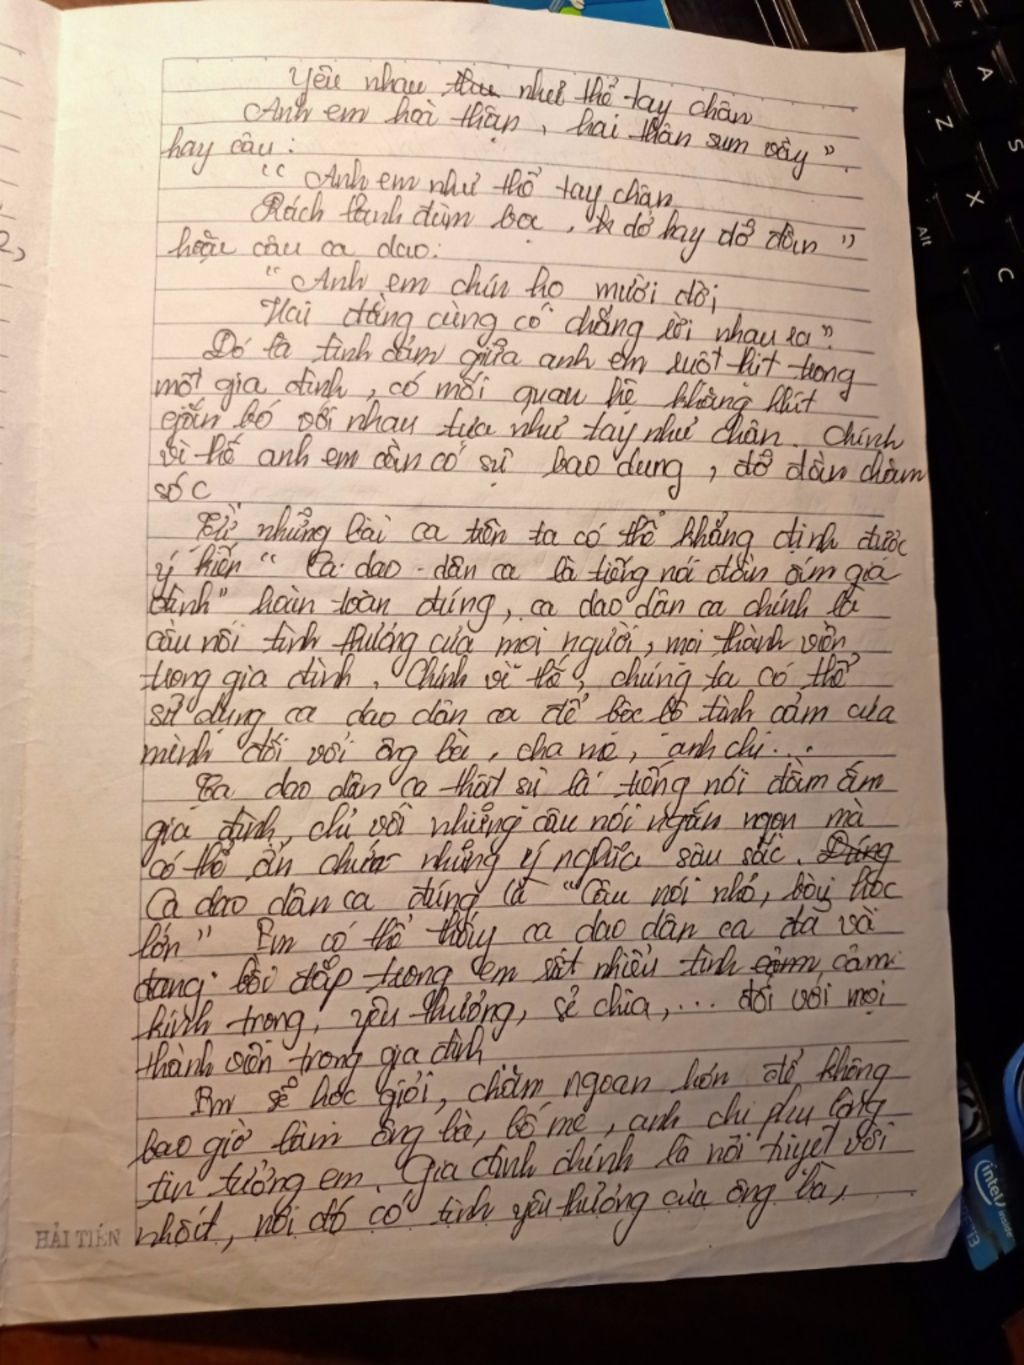 Yêu nhau như thể tay chân
Anh em hoà thận, hai thân sum vầy"
hay câu:
"Anh em như thể tay chân
Rách lành đùm bọc, dở hay đỡ đần"
hoặc câu ca dao:
"Anh em chín họ mười đời
Hai đằng cùng có chẳng rời nhau ra".
Đó là tình cảm giữa anh em ruột thịt trong
một gia đình, có mối quan hệ khăng khít
gắn bó với nhau tựa như tay như chân. Chính
vì thế anh em cần có sự bao dung, đỡ đần chăm
sóc
Từ những bài ca trên ta có thể khẳng định được
ý kiến "Ca dao - dân ca là tiếng nói đầm ấm gia
đình" hoàn toàn đúng, ca dao dân ca chính là
cầu nối tình thương của mọi người, mọi thành viên
trong gia đình. Chính vì thế, chúng ta có thể
sử dụng ca dao dân ca để bộc lộ tình cảm của
mình đối với ông bà, cha mẹ, anh chị...
Ca dao dân ca thật sự là tiếng nói đầm ấm
gia đình, chỉ với những câu nói ngắn ngọn mà
có thể ẩn chứa những ý nghĩa sâu sắc. Đúng
Ca dao dân ca đúng là "Câu nói nhỏ, bài học
lớn" Em có thể thấy ca dao dân ca đã và
đang bồi đắp trong em rất nhiều tình cảm, cảm
kính trọng, yêu thương, sẻ chia,... đối với mọi
thành viên trong gia đình
Em sẽ học giỏi, chăm ngoan hơn để không
bao giờ làm ông bà, bố mẹ, anh chị phụ lòng
tin tưởng em. Gia đình chính là nơi tuyệt vời
nhất, nơi đó có tình yêu thương của ông bà,
HẢI TIẾN
intel
inside
Alt
Z
X
C
A
S